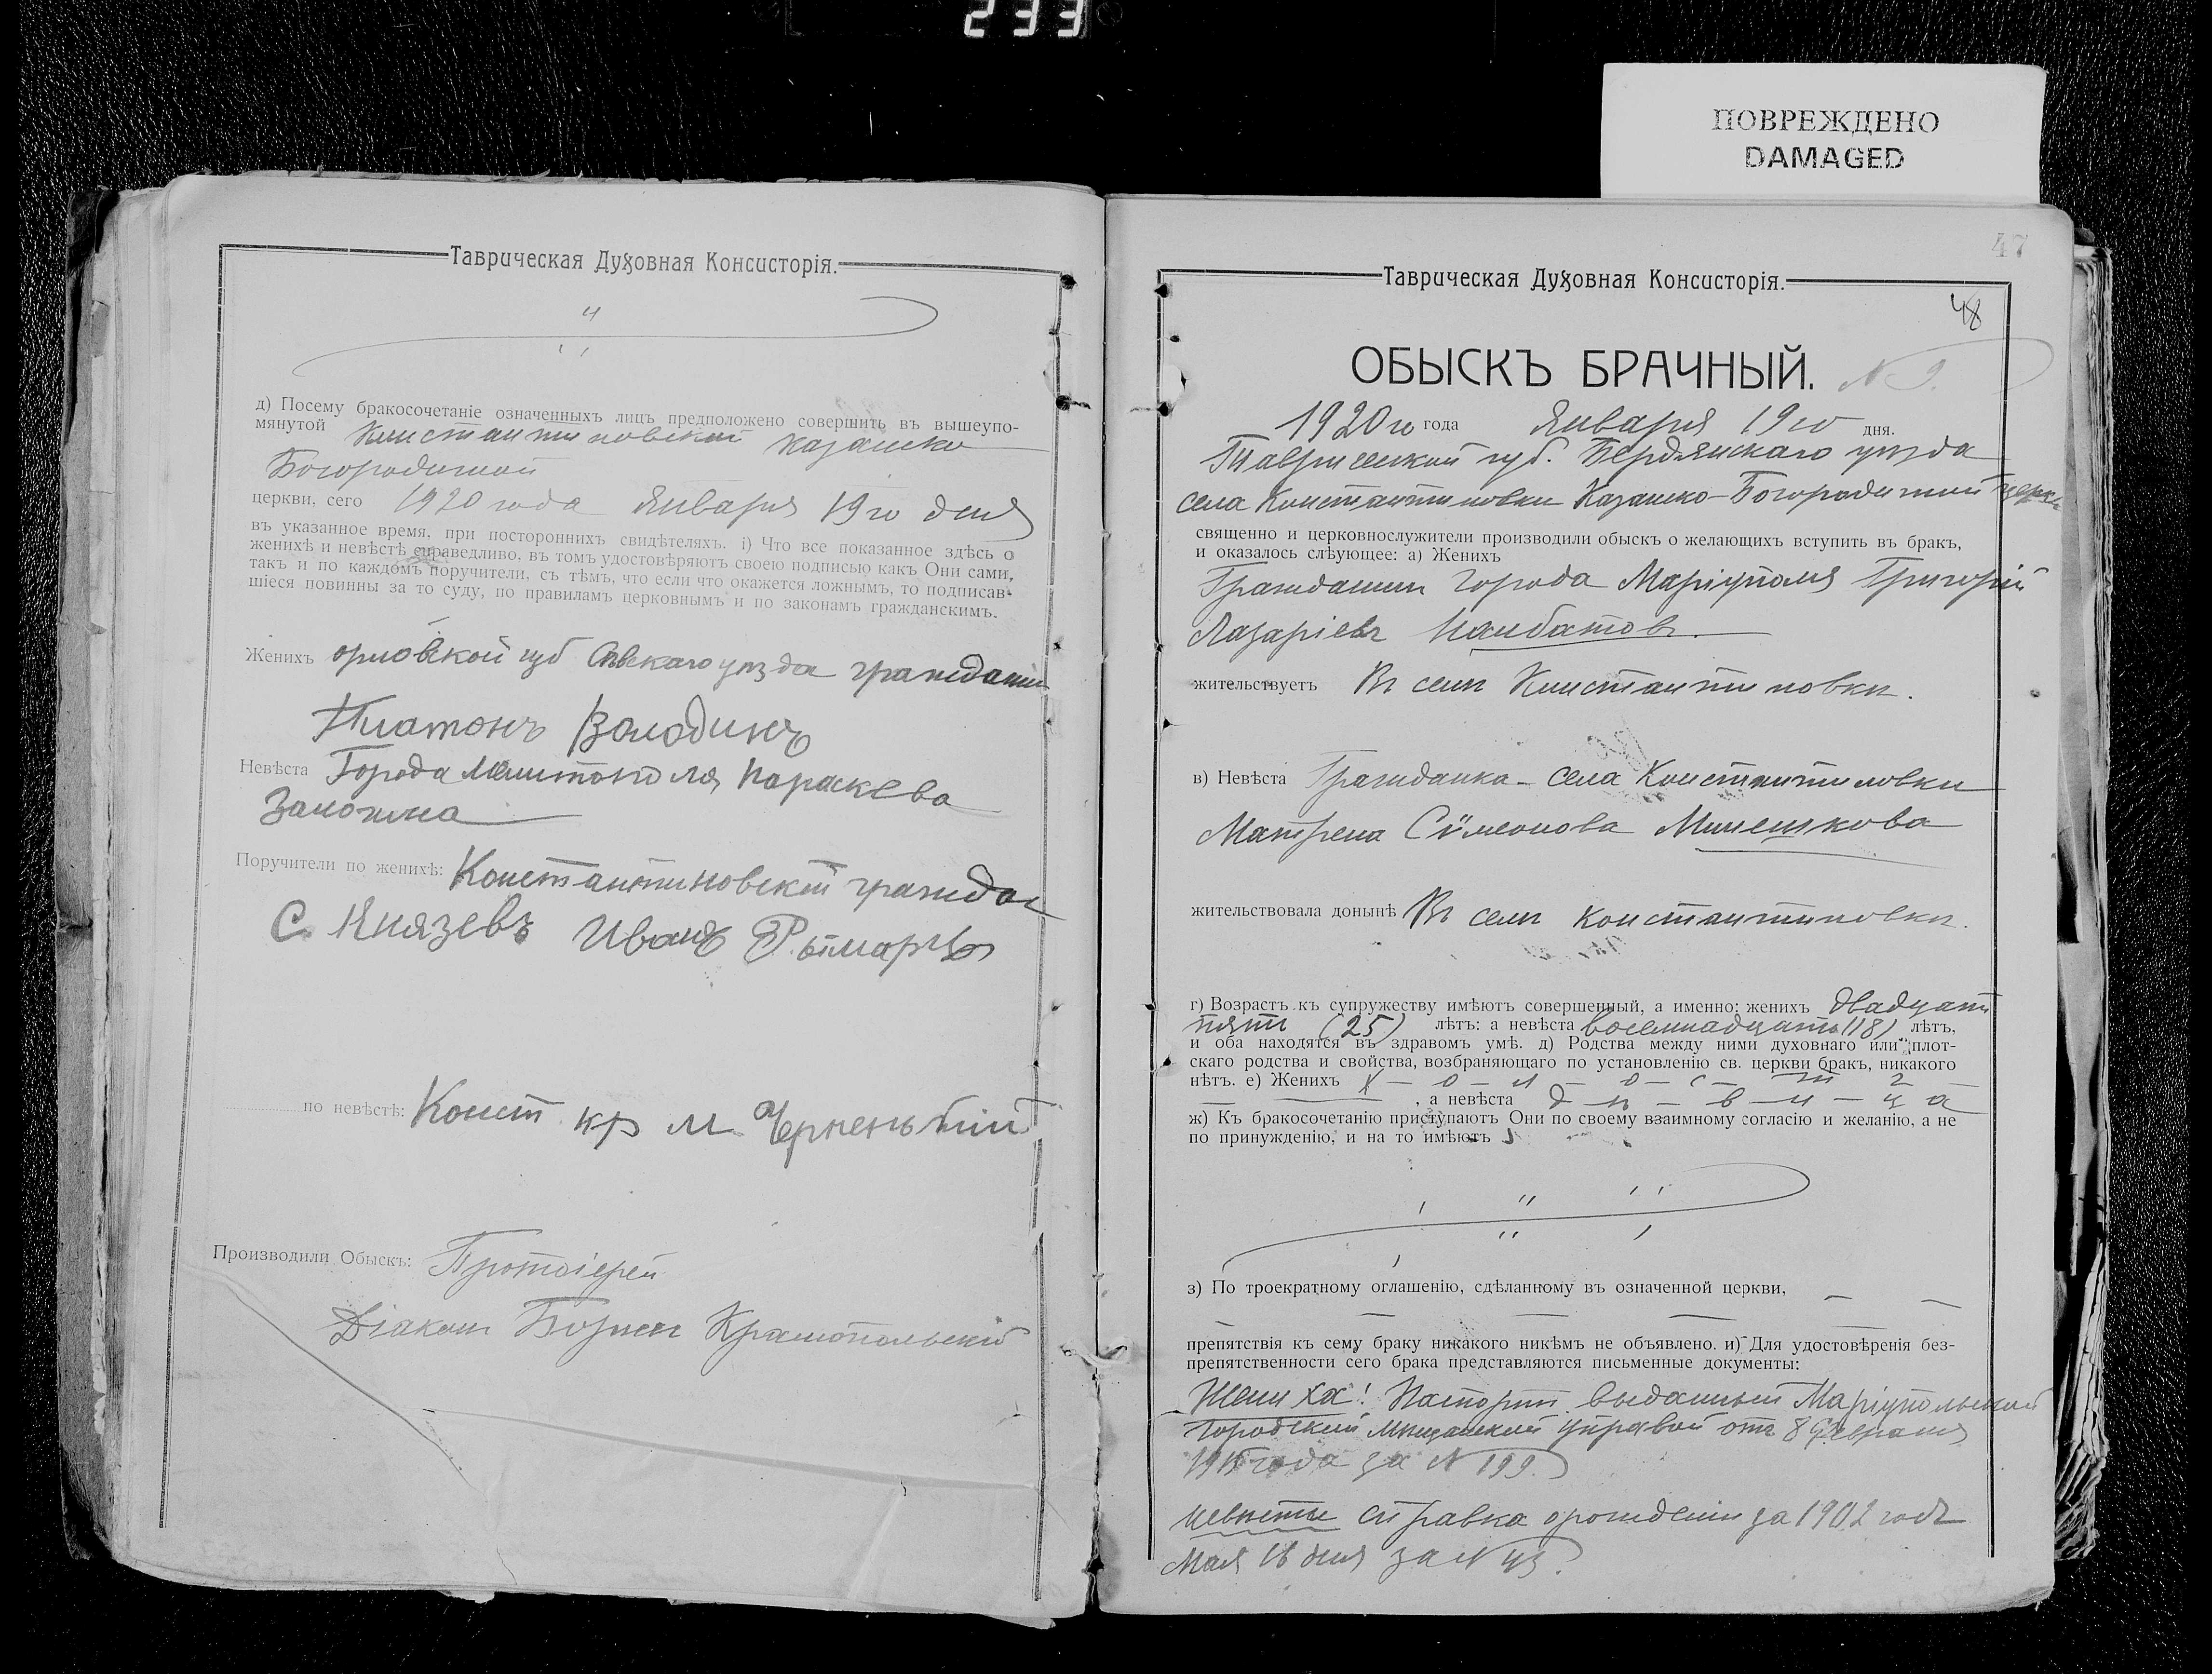 233
ПОВРЕЖДЕНО
DAMAGED
Таврическая Духовная Консисторія.
д) Посему бракосочетаніе означенныхъ лицъ предположено совершить въ вышеупо-
мянутой Константиновской Казанско
Богородичной
церкви, сего 1920 года Января 19го дня
въ указанное время, при постороннихъ свидѣтеляхъ. і) Что все показанное здѣсь о
женихѣ и невѣстѣ справедливо, въ томъ удостовѣряютъ своею подписью какъ Они сами,
такъ и по каждомъ поручители, съ тѣмъ, что если что окажется ложнымъ, то подписав-
шіеся повинны за то суду, по правиламъ церковнымъ и по законамъ гражданскимъ.
Женихъ орловской губ Сѣвскаго уѣзда гражданин
Платонъ Володинъ
Невѣста Города Мелитополя Параскева
Поручители по женихѣ: Константиновскій граждан
С. Князевъ Иванъ Рымарь
по невѣстѣ: Конст кр М Черненькій
Производили Обыскъ: Протоіерей
Діаконъ Борисъ Краснопольскій
47
Таврическая Духовная Консисторія.
48
ОБЫСКЪ БРАЧНЫЙ. N 9.
1920го года Января 19го дня.
Таврической губ. Бердянскаго уѣзда
села Константиновки Казанско-Богородичной церкви
священно и церковнослужители производили обыскъ о желающихъ вступить въ бракъ,
и оказалось слѣующее: а) Женихъ
Гражданин города Маріуполя Григорій
Лазаріевъ
жительствуетъ Въ селѣ Константиновкѣ.
в) Невѣста Гражданка села Константиновки
Матрена Сѵмеонова Минешкова
жительствовала донынѣ Въ селѣ Константиновкѣ.
г) Возрастъ къ супружеству имѣютъ совершенный, а именно: женихъ двадцати
пяти (25) лѣтъ: а невѣста восемнадцать (18) лѣтъ,
и оба находятся въ здравомъ умѣ. д) Родства между ними духовнаго или плот-
скаго родства и свойства, возбраняющаго по установленію св. церкви бракъ, никакого
нѣтъ. е) Женихъ х – о – л – о – с – т ъ
, а невѣста д – ѣ – в – и – ц а
ж) Къ бракосочетанію приступаютъ Они по своему взаимному согласію и желанію, а не
по принужденію, и на то имѣютъ
з) По троекратному оглашенію, сдѣланному въ означенной церкви,
препятствія къ сему браку никакого никѣмъ не объявлено. и) Для удостовѣренія без-
препятственности сего брака представляются письменные документы:
Жениха: Паспортъ выданный Маріупольской
Городской Мѣщанской Управой отъ 8 Февраля
года за N 199.
невѣсты справка о рожденіи за 1902 годъ
Мая дня за N